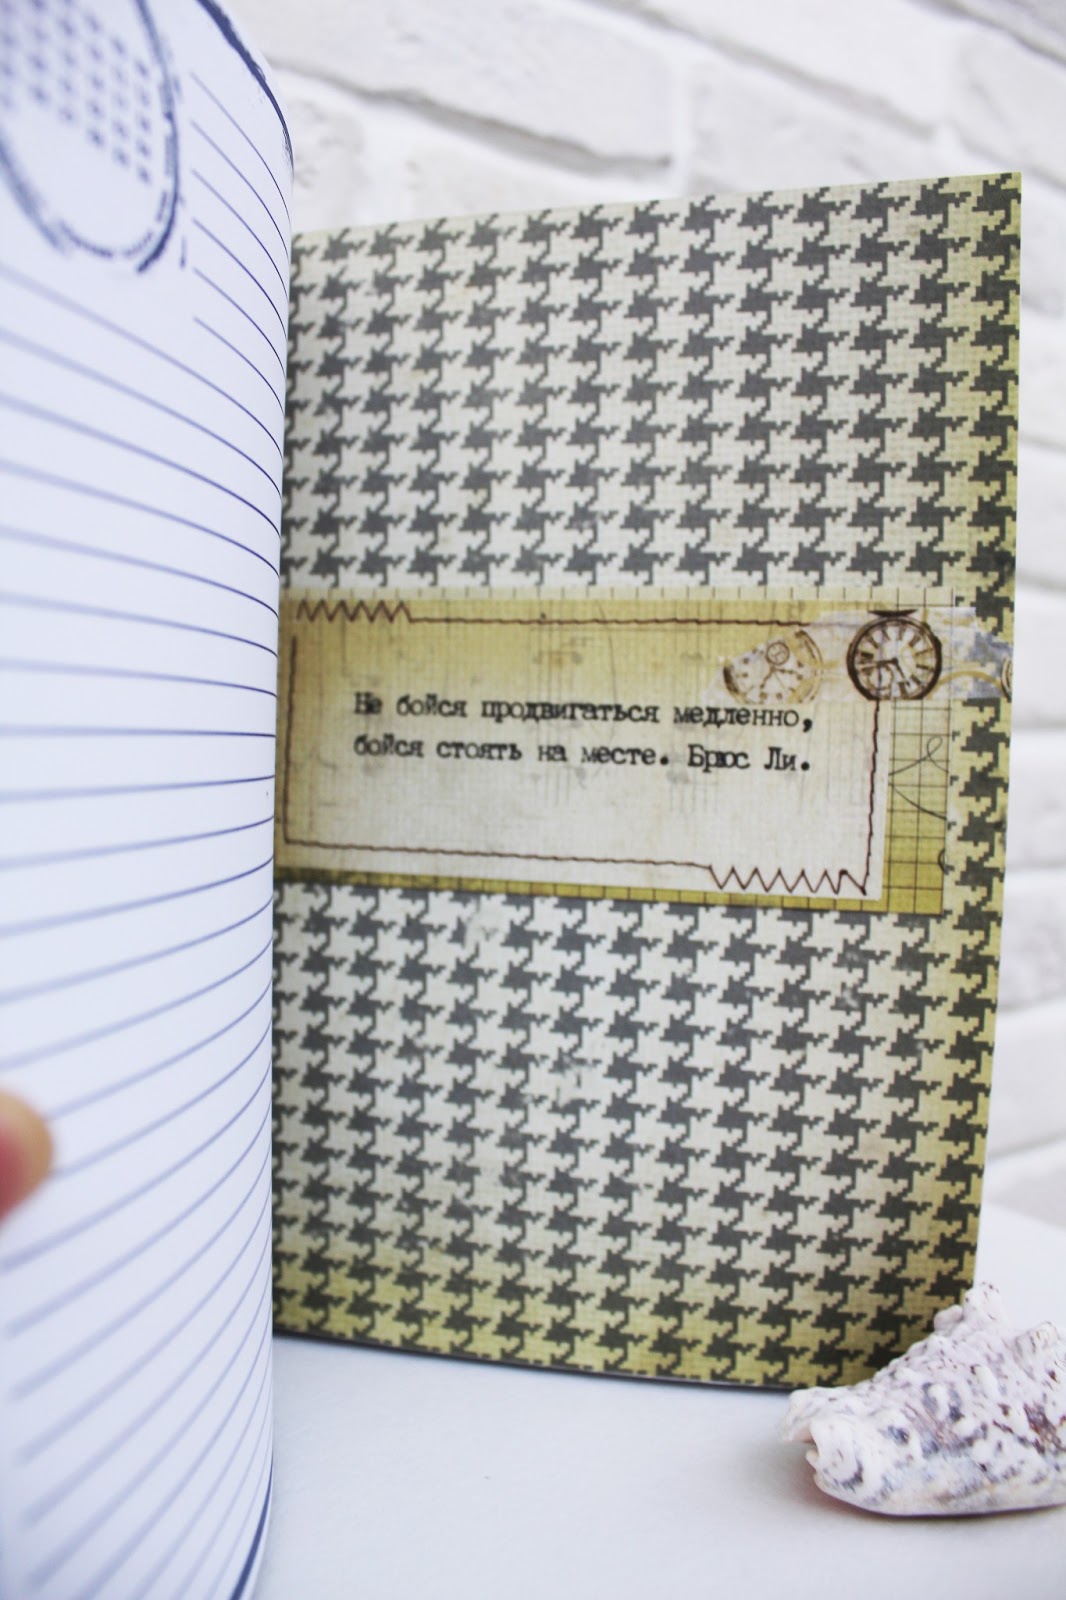 Не бойся продвигаться медленно,
бойся стоять на месте. Брюс Ли.